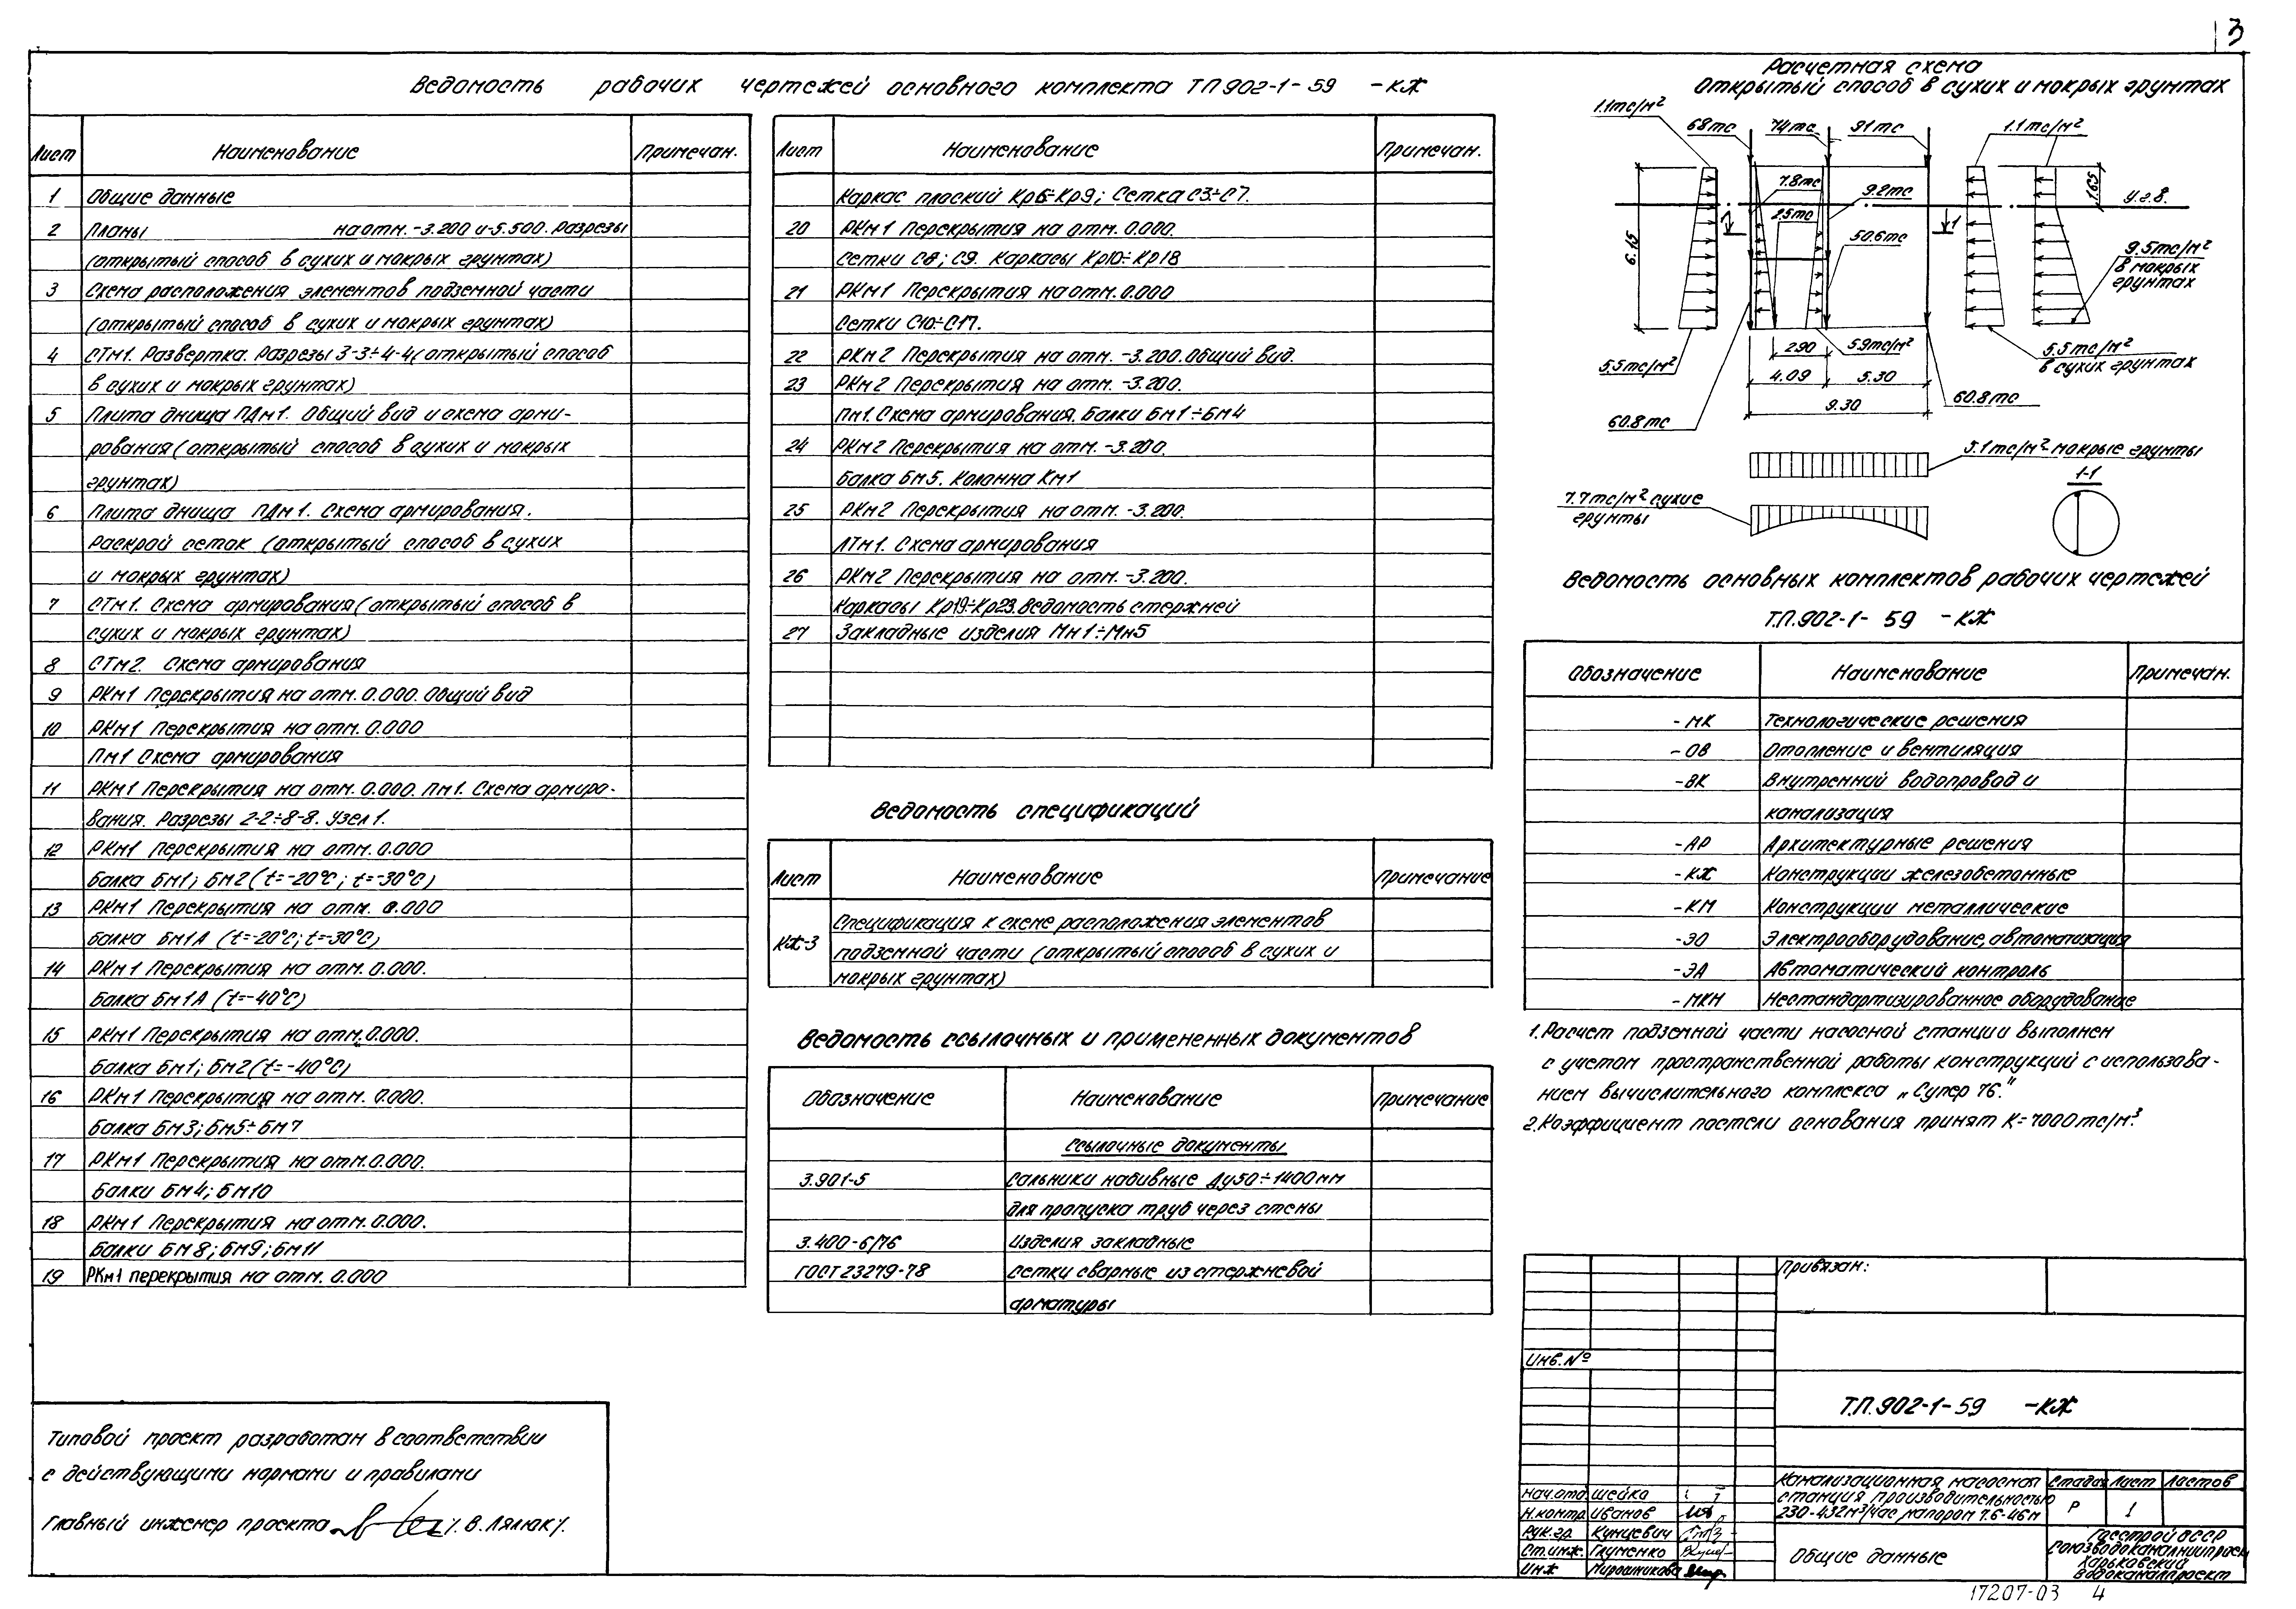 3
Ведомость рабочих чертежей основного комплекта ТП 902-1-59 -КЖ
Лист Наименование Примечан.
1 Общие данные
2 Планы на отм. -3.200 и -5.500. Разрезы
(открытый способ в сухих и мокрых грунтах)
3 Схема расположения элементов подземной части
(открытый способ в сухих и мокрых грунтах)
4 СТм1. Развертка. Разрезы 3-3÷4-4 (открытый способ
в сухих и мокрых грунтах)
5 Плита днища ПДм1. Общий вид и схема арми-
рования (открытый способ в сухих и мокрых
грунтах)
6 Плита днища ПДм1. Схема армирования.
Раскрой сеток (открытый способ в сухих
и мокрых грунтах)
7 СТм1. Схема армирования (открытый способ в
сухих и мокрых грунтах)
8 СТм2. Схема армирования
9 РКм1 Перекрытия на отм. 0.000. Общий вид
10 РКм1 Перекрытия на отм. 0.000
Пм1 Схема армирования
11 РКм1 Перекрытия на отм. 0.000. Пм1. Схема армиро-
вания. Разрезы 2-2÷8-8. Узел 1.
12 РКм1 Перекрытия на отм. 0.000
Балка Бм1; Бм2 (t=-20°С; t=-30°С)
13 РКм1 Перекрытия на отм. 0.000
Балка Бм1А (t=-20°С; t=-30°С)
14 РКм1 Перекрытия на отм. 0.000.
Балка Бм1А (t=-40°С)
15 РКм1 Перекрытия на отм. 0.000.
Балка Бм1; Бм2 (t=-40°С)
16 РКм1 Перекрытия на отм. 0.000.
Балка Бм3; Бм5÷Бм7
17 РКм1 Перекрытия на отм. 0.000.
Балки Бм4; Бм10
18 РКм1 Перекрытия на отм. 0.000.
Балки Бм8; Бм9; Бм11
19 РКм1 перекрытия на отм. 0.000
Типовой проект разработан в соответствии
с действующими нормами и правилами
Главный инженер проекта /. В. Лялюк/.
Лист Наименование Примечан.
Каркас плоский Кр6÷Кр9; Сетка С3÷С7.
20 РКм1 Перекрытия на отм. 0.000.
Сетки С8; С9. Каркасы Кр10÷Кр18
21 РКм1 Перекрытия на отм. 0.000
Сетки С10÷С17.
22 РКм2 Перекрытия на отм. -3.200. Общий вид.
23 РКм2 Перекрытия на отм. -3.200.
Пм1. Схема армирования. Балки Бм1÷Бм4
24 РКм2 Перекрытия на отм. -3.200.
Балка Бм5. Колонна Км1
25 РКм2 Перекрытия на отм. -3.200.
ЛТм1. Схема армирования
26 РКм2 Перекрытия на отм. -3.200.
Каркасы Кр19÷Кр23. Ведомость стержней
27 Закладные изделия Мн1÷Мн5
Ведомость спецификаций
Лист Наименование Примечание
КЖ-3 Спецификация к схеме расположения элементов
подземной части (открытый способ в сухих и
мокрых грунтах)
Ведомость ссылочных и примененных документов
Обозначение Наименование Примечание
Ссылочные документы
3.901-5 Сальники набивные Ду50÷1400мм
для пропуска труб через стены
3.400-6/76 Изделия закладные
ГОСТ 23279-78 Сетки сварные из стержневой
арматуры
Расчетная схема
Открытый способ в сухих и мокрых грунтах
1.1тс/м²
68тс 74тс 91тс 1.1тс/м²
7.8тс 9.2тс 1.65
У.г.в.
25тс
1 1
50.6тс
6.15
9.5тс/м²
в мокрых
грунтах
5.5тс/м² 2.90 5.9тс/м² 5.5тс/м²
в сухих грунтах
4.09 5.30
9.30
60.8тс 60.8тс
5.1тс/м² мокрые грунты
1-1
7.7тс/м² сухие
грунты
Ведомость основных комплектов рабочих чертежей
Т.П.902-1-59 -КЖ
Обозначение Наименование Примечан.
-МК Технологические решения
-ОВ Отопление и вентиляция
-ВК Внутренний водопровод и
канализация
-АР Архитектурные решения
-КЖ Конструкции железобетонные
-КМ Конструкции металлические
-ЭО Электрооборудование, автоматизация
-ЭА Автоматический контроль
-МКМ Нестандартизированное оборудование
1. Расчет подземной части насосной станции выполнен
с учетом пространственной работы конструкций с использова-
нием вычислительного комплекса „Супер 76."
2. Коэффициент постели основания принят К=7000тс/м³.
Привязан:
Инв. №
Т.П.902-1-59 -КЖ
Нач.отд. Шейко
Н.контр. Иванов
Рук.гр. Кунцевич
Ст.инж. Глуменко
Инж Мирошникова
Канализационная насосная
станция производительностью
230-432м³/час, напором 7.6-46м
Стадия Лист Листов
Р 1
Общие данные
Госстрой СССР
Союзводоканалниипроект
Харьковский
Водоканалпроект
17207-03 4